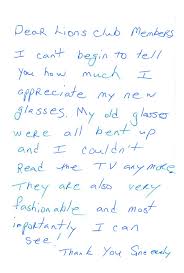 Dear Lions Club Members
I can't begin to tell
you how much I
appreciate my new
glasses. My old glasses
were all bent up
and I couldn't
Read the TV anymore.
They are also very
fashionable and most
importantly I can
see!
Thank You Sincerely